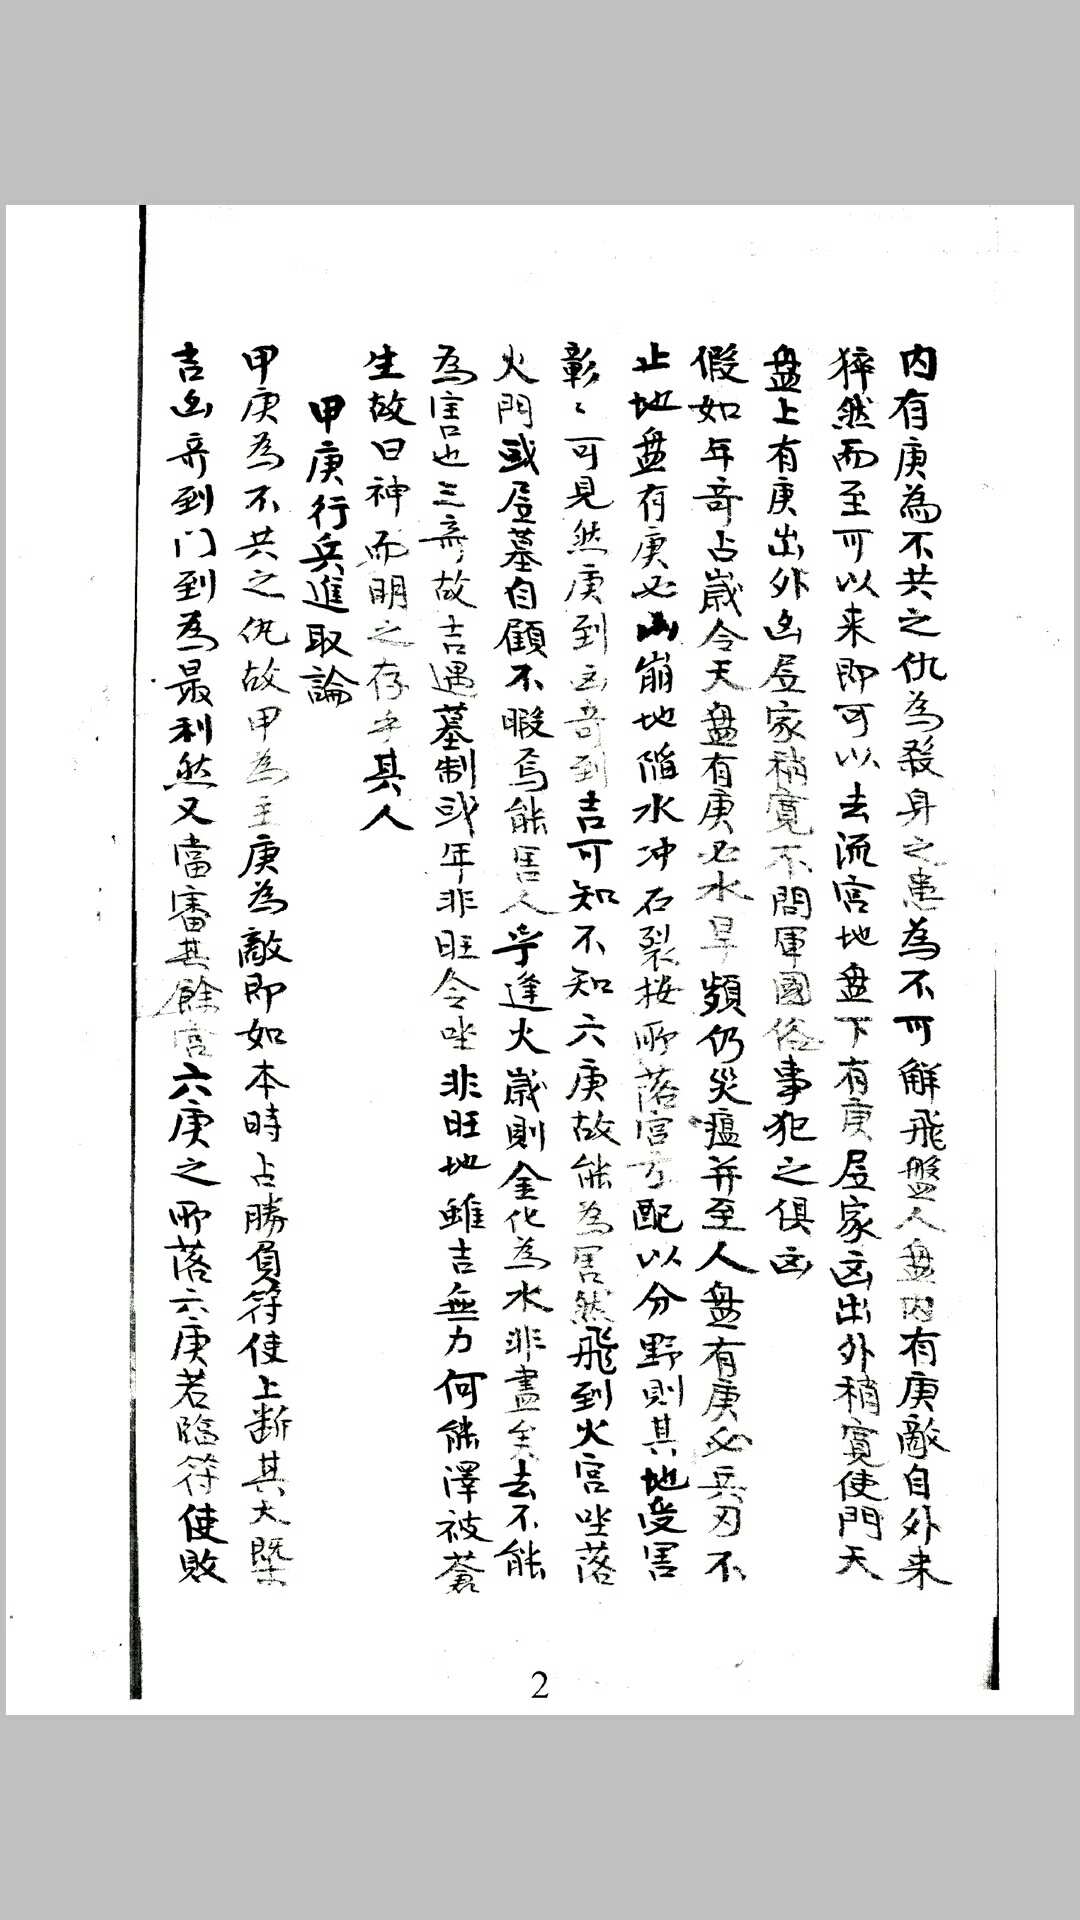 内有庚為不共之仇為殺身之患為不可解飛盤人盘内有庚敵自外来
猝然而至可以来即可以去流宫地盘下有庚居家凶出外稍寬使門天
盘上有庚出外凶居家稍寬不問軍國俗事犯之俱凶
假如年竒占嵗令天盘有庚必水旱頻仍災瘟并至人盘有庚必兵刃不
止地盘有庚必山崩地陷水冲石裂按所落宫方配以分野則其地受害
彰〻可見然庚到凶竒到吉可知不知六庚故能為害然飛到火宫坐落
火門或居墓自顧不暇焉能害人乎逢火嵗則金化為水非盡矣去不能
為害也三竒故吉遇墓制或年非旺令坐非旺地雖吉無力何能澤被蒼
生故曰神而明之存乎其人
甲庚行兵進取論
甲庚為不共之仇故甲為主庚為敵即如本時占勝負符使上断其大槩
吉凶竒到门到為最利然又當審其餘宫六庚之所落六庚若臨符使敗
2